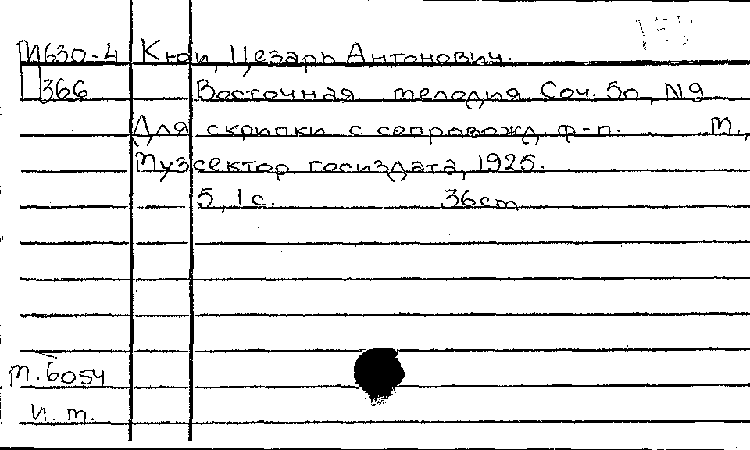 М630-4 Кюи, Цезарь Антонович.
П366 Восточная мелодия Соч. 50, N9
Для скрипки с сопровожд. ф-п. М.,
Музсектор госиздата, 1925.
5, 1 с. 36cm
т. 6054
н. т.